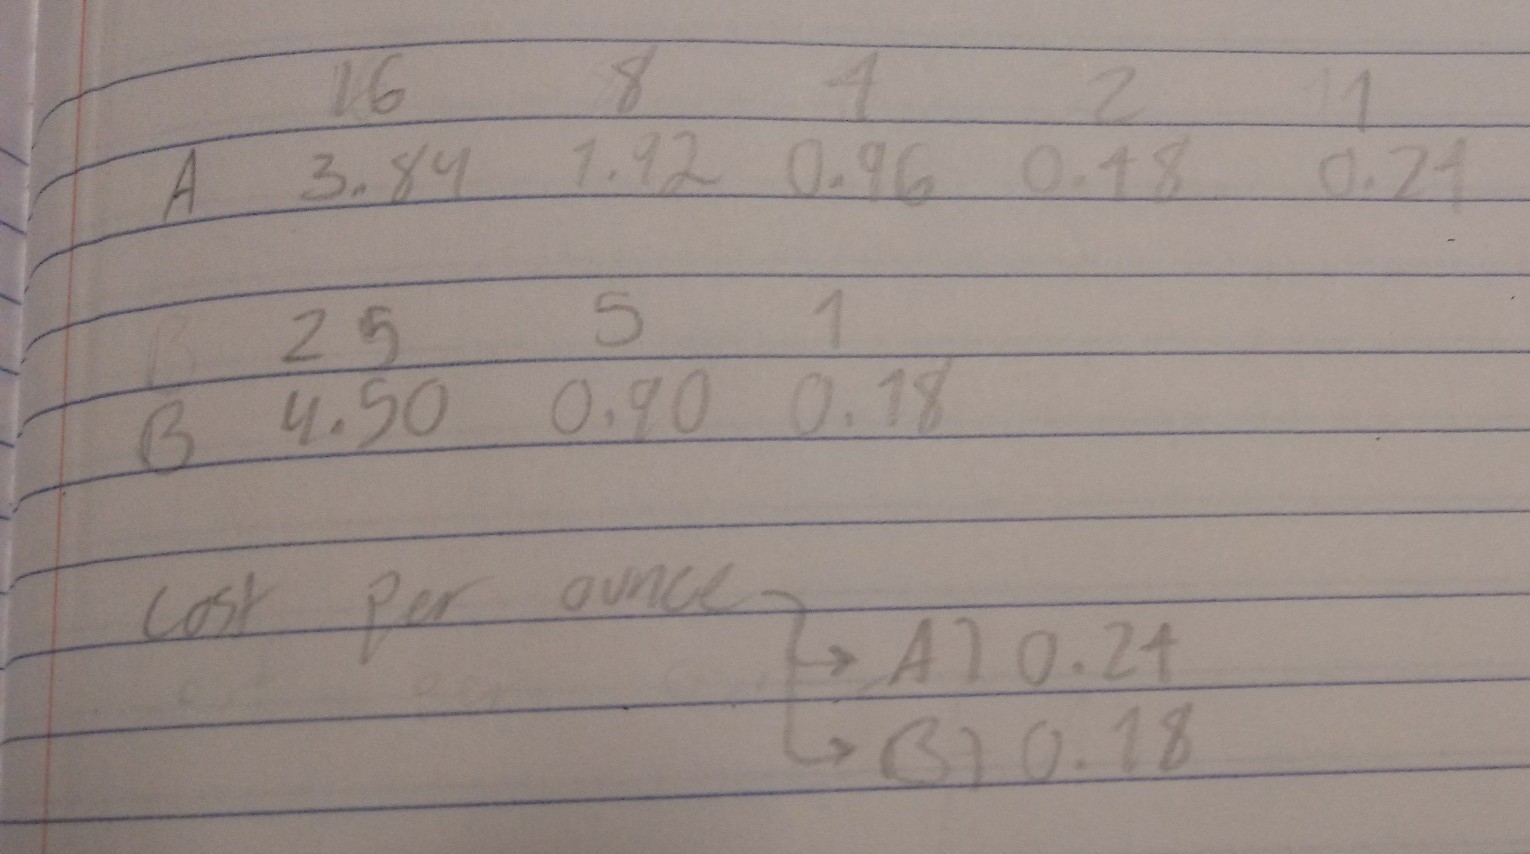 16 8 4 2 1
A 3.84 1.92 0.96 0.48 0.24
25 5 1
B 4.50 0.90 0.18
cost per ounce
→ A) 0.24
→ B) 0.18